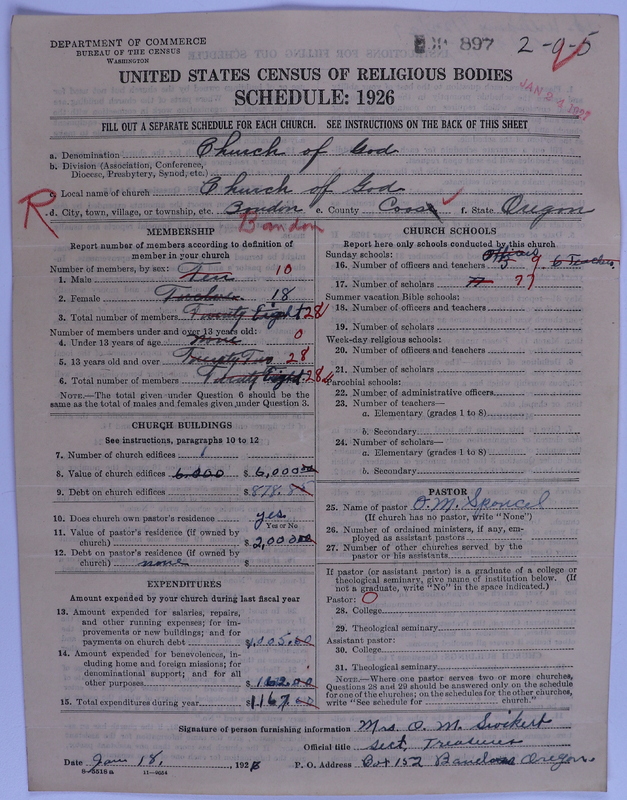 DEPARTMENT OF COMMERCE
BUREAU OF THE CENSUS
WASHINGTON
897 2-9-5
UNITED STATES CENSUS OF RELIGIOUS BODIES
SCHEDULE: 1926
FILL OUT A SEPARATE SCHEDULE FOR EACH CHURCH. SEE INSTRUCTIONS ON THE BACK OF THIS SHEET
a. Denomination Church of God
b. Division (Association, Conference, Diocese, Presbytery, Synod, etc.)
c. Local name of church Church of God
R
d. City, town, village, or township, etc. Bandon e. County Coos f. State Oregon
Bandon
MEMBERSHIP
Report number of members according to definition of member in your church
Number of members, by sex:
1. Male Ten 10
2. Female 18
3. Total number of members Twenty Eight 28
Number of members under and over 13 years old:
4. Under 13 years of age none 0
5. 13 years old and over 28
6. Total number of members Twenty Eight 28
NOTE.—The total given under Question 6 should be same as the total of males and females given under Question 3.
CHURCH BUILDINGS
See instructions, paragraphs 10 to 12
7. Number of church edifices 1
8. Value of church edifices 6,000 $ 6,000.00
9. Debt on church edifices $ 878.
10. Does church own pastor's residence yes
Yes or No
11. Value of pastor's residence (if owned by church) $ 2,000.00
12. Debt on pastor's residence (if owned by church) none $
EXPENDITURES
Amount expended by your church during last fiscal year
13. Amount expended for salaries, repairs, and other running expenses; for improvements or new buildings; and for payments on church debt
14. Amount expended for benevolences, including home and foreign missions; for denominational support; and for all other purposes $ 162.00
15. Total expenditures during year $ 1,167.00
CHURCH SCHOOLS
Report here only schools conducted by this church
Sunday schools:
16. Number of officers and teachers 9
17. Number of scholars 77
Summer vacation Bible schools:
18. Number of officers and teachers
19. Number of scholars
Week-day religious schools:
20. Number of officers and teachers
21. Number of scholars
Parochial schools:
22. Number of administrative officers
23. Number of teachers—
a. Elementary (grades 1 to 8)
b. Secondary
24. Number of scholars—
a. Elementary (grades 1 to 8)
b. Secondary
PASTOR
25. Name of pastor O. M.
(If church has no pastor, write "None")
26. Number of ordained ministers, if any, employed as assistant pastors
27. Number of other churches served by the pastor or his assistants
If pastor (or assistant pastor) is a graduate of a college or theological seminary, give name of institution below. (If not a graduate, write "No" in the space indicated.)
Pastor: O
28. College
29. Theological seminary
Assistant pastor:
30. College
31. Theological seminary
NOTE.—Where one pastor serves two or more churches, Questions 28 and 29 should be answered only on the schedule for one of the churches; on the schedules for the other churches, write "See schedule for church."
Signature of person furnishing information Mrs. O. M.
Official title Sect. Treasurer
Date Jan 18, 192 P. O. Address Box 152 Bandon Oregon.
8-5518a 11-9054